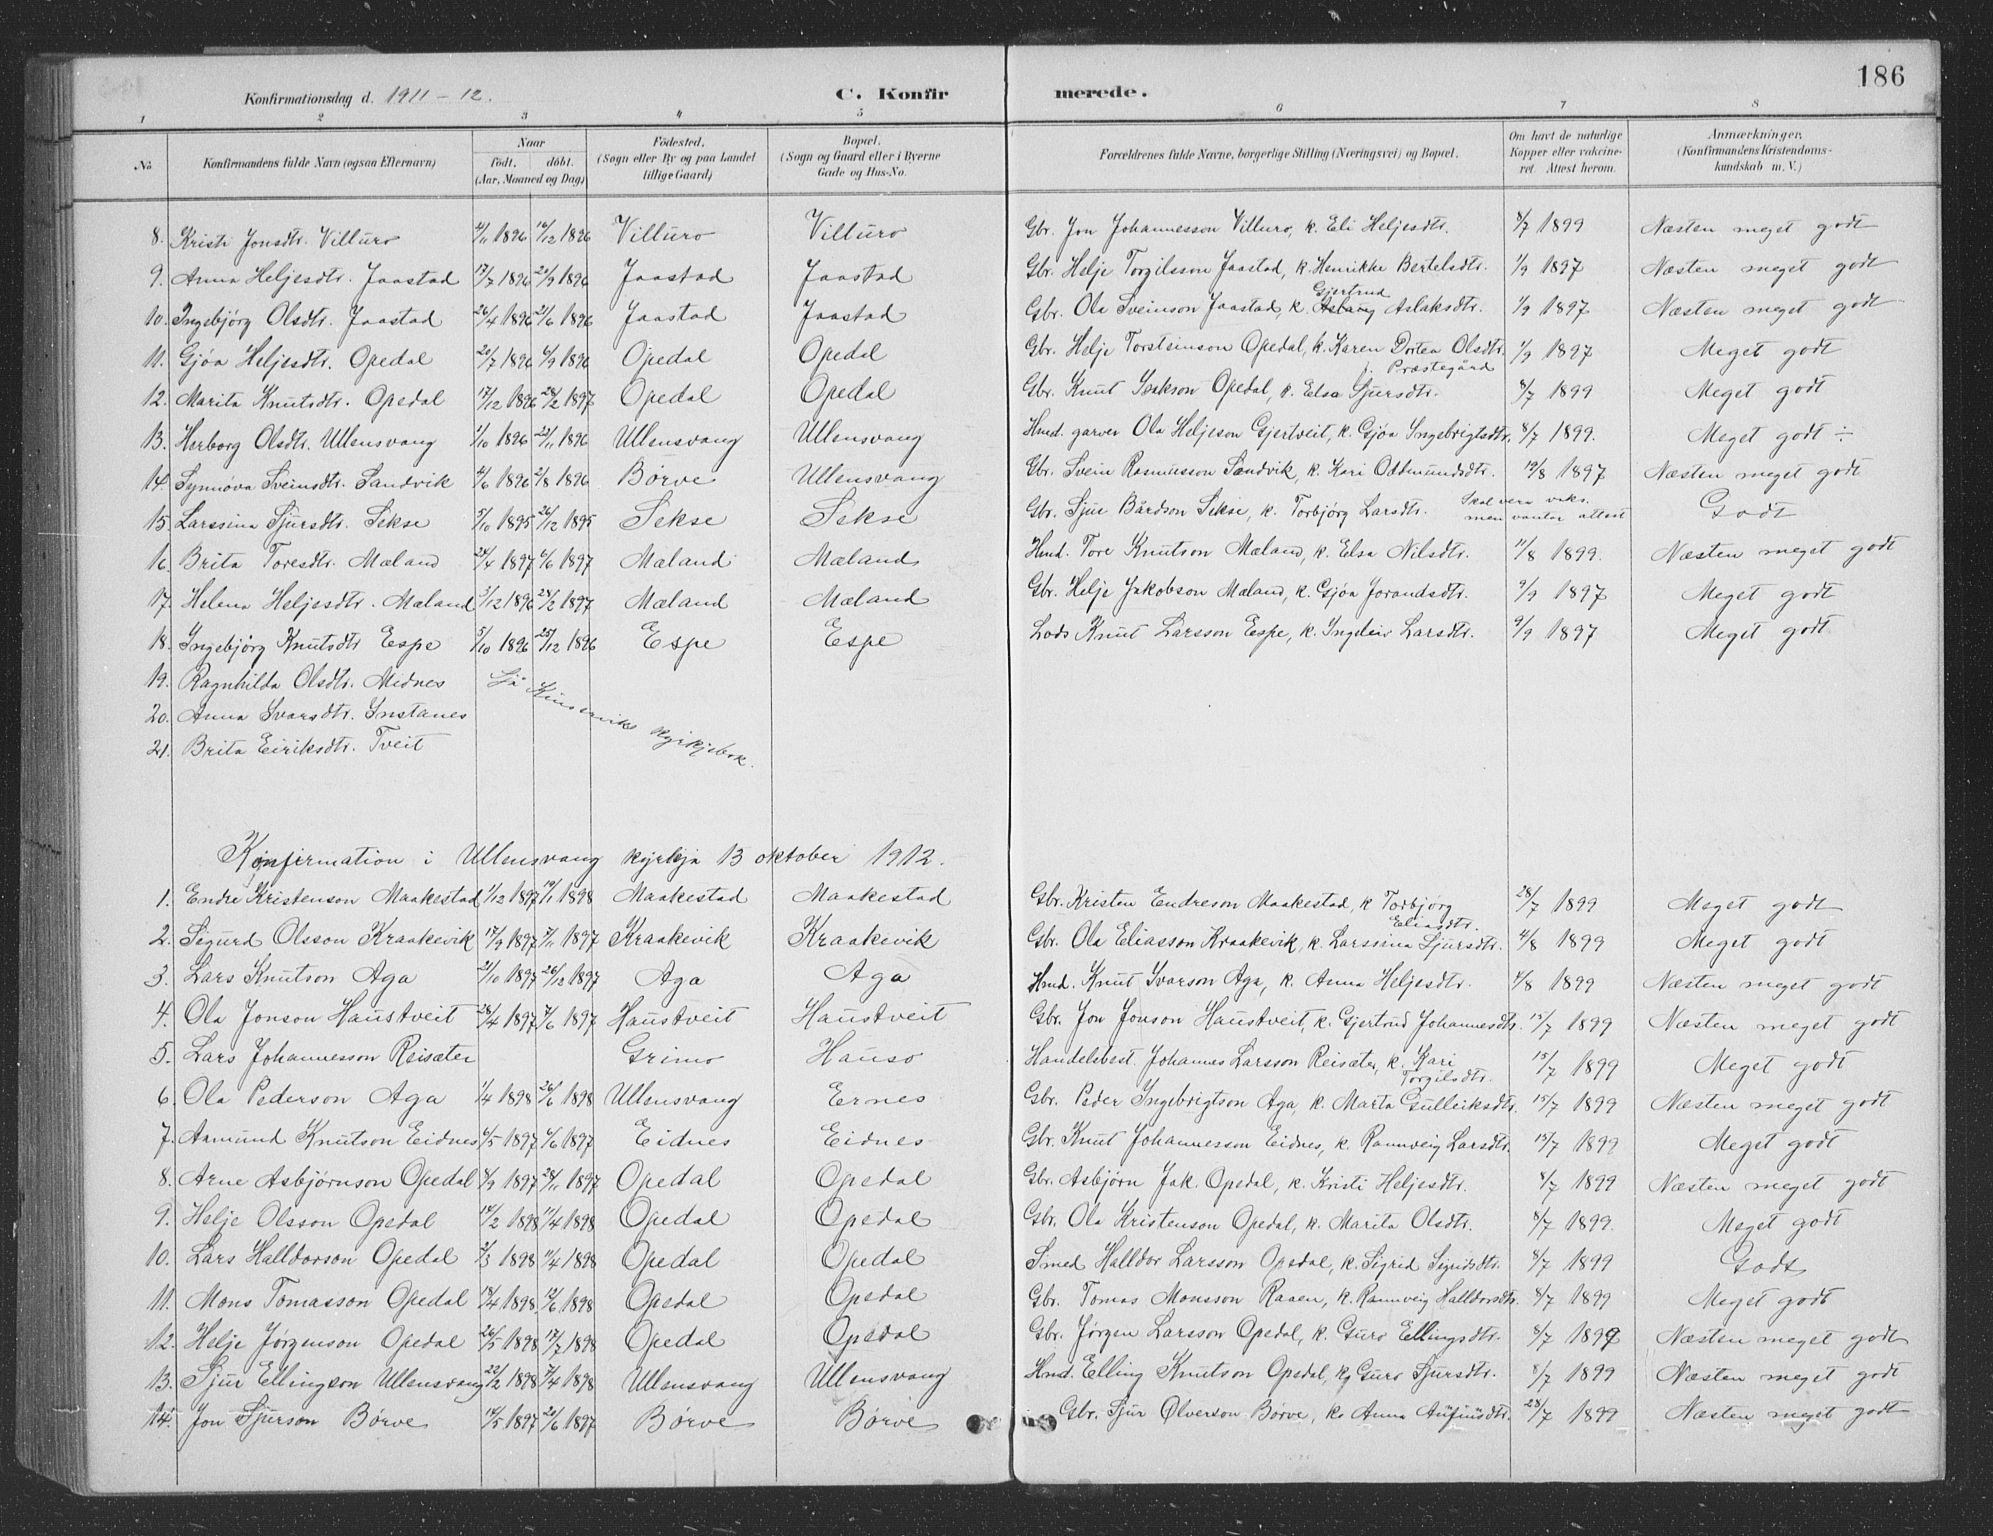 186
Konfirmationsdag d. 1911 - 12. C. Konfirmerede.
1 2 3 4 5 6 7 8
No. Konfirmandens fulde Navn (ogsaa Efternavn) Naar født. døbt. (Aar, Maaned og Dag) Fødested. (Sogn eller By og paa Landet tillige Gaard) Bopæl. (Sogn og Gaard eller i Byerne Gade og Hus-No. Forældrenes fulde Navne, borgerlige Stilling (Næringsvei) og Bopæl. Om havt de naturlige Kopper eller vakcineret. Attest herom. Anmærkninger. (Konfirmandens Kristendomskundskab m. V.)
8. Kristi Jonsdtr. Villuro 1896 16/12 1896 Villuro Villuro Gbr. Jon Johannesson Villuro, k. Eli Heljesdtr. 8/7 1899 Næsten meget godt
9. Anna Heljesdtr. Jaastad 17/7 1896 20/9 1896 Jaastad Jaastad Gbr. Helje Torgilsson Jaastad, k. Henrikke Bertelsdtr. 1/9 1897 Næsten meget godt
10. Ingebjörg Olsdtr. Jaastad 26/4 1896 21/6 1896 Jaastad Jaastad Gbr. Ola Sveinson Jaastad, k. Gjertrud Aslaksdtr. 1/9 1897 Næsten meget godt
11. Gjøa Heljesdtr. Opedal 20/7 1896 6/9 1896 Opedal Opedal Gbr. Helje Torsteinson Opedal, k. Karen Dortea Olsdtr. Præstegård 1/9 1897 Meget godt
12. Marita Knutsdtr. Opedal 17/12 1896 24/2 1897 Opedal Opedal Gbr. Knut Isakson Opedal, k. Elsa Sjursdtr. 8/7 1899 Meget godt
13. Herborg Olsdtr. Ullensvang 1/10 1896 22/11 1896 Ullensvang Ullensvang Hmd. garver Ola Heljeson Gjertveit, k. Gjøa Ingebrigtsdtr. 8/7 1899. Meget godt ÷
14. Synnöva Sveinsdtr. Sandvik 4/6 1896 2/8 1896 Børve Ullensvang Gbr. Svein Rasmusson Sandvik, k. Kari Oddmundsdtr. 19/8 1897 Næsten meget godt
15. Larssina Sjursdtr. Sekse 3/10 1895 26/12 1895 Sekse Sekse Gbr. Sjur Bårdson Sekse, k. Torbjørg Larsdtr. Skal vera vaks. men vantar attest Godt
16. Brita Toresdtr. Mæland 24/4 1897 6/6 1897 Mæland Mæland Hmd. Tore Knutson Mæland, k. Elsa Nilsdtr. 11/8 1899. Næsten meget godt
17. Helena Heljesdtr. Mæland 3/12 1896 24/2 1897 Mæland Mæland Gbr. Helje Jakobson Mæland, k. Gjøa Jorandsdtr. 9/9 1897 Meget godt
18. Ingebjörg Knutsdtr Espe 5/10 1896 25/12 1896 Espe Espe Lods Knut Larsson Espe, k. Ingeleiv Larsdtr. 9/9 1897 Meget godt
19. Ragnhilda Olsdtr. Midnes Sjå Kinsarviks kyrkjebok.
20. Anna Ivarsdtr. Instanes
21. Brita Eiriksdtr. Tveit
Konfirmation i Ullensvang kyrkja 13 oktober 1912.
1. Endre Kristenson Maakestad 1/12 1897 19/1 1898 Maakestad Maakestad Gbr. Kristen Endreson Maakestad, k Torbjørg Eliasdtr. 28/7 1899 Meget godt
2. Sigurd Olsson Kraakevik 17/9 1897 7/11 1897 Kraakevik Kraakevik Gbr. Ola Eliasson Kraakevik, k. Larssina Sjursdtr. 4/8 1899 Meget godt
3. Lars Knutson Aga 21/10 1897 26/12 1897 Aga Aga Hmd. Knut Ivarson Aga, k. Anna Heljesdtr. 4/8 1899 Næsten meget godt
4. Ola Jonson Haustveit 28/4 1897 7/6 1897 Haustveit Haustveit Gbr. Jon Jonson Haustveit, k. Gjertrud Johannesdtr. 15/7 1899 Næsten meget godt
5. Lars Johannesson Reisæter Grimo Hauso Handelsbest. Johannes Larsson Reisæter, k. Kari Torgilsdtr. 15/7 1899 Meget godt
6. Ola Pederson Aga 1/4 1898 26/6 1898 Ullensvang Ernes Gbr. Peder Ingebrigtson Aga, k. Marta Gulleiksdtr. 15/7 1899 Næsten meget godt
7. Aamund Knutson Eidnes 6/5 1897 6/6 1897 Eidnes Eidnes Gbr. Knut Johannesson Eidnes, k. Rannveig Larsdtr. 15/7 1899 Meget godt
8. Arne Asbjørnson Opedal 8/9 1897 28/11 1897 Opedal Opedal Gbr. Asbjørn Jak. Opedal, k. Kristi Heljesdtr. 8/7 1899 Næsten meget godt
9. Helje Olsson Opedal 14/2 1898 11/4 1898 Opedal Opedal Gbr. Ola Kristenson Opedal, k. Marita Olsdtr. 8/7 1899. Meget godt
10. Lars Halldorson Opedal 2/3 1898 11/4 1898 Opedal Opedal Smed Halldor Larsson Opedal, k. Sigrid Sigurdsdtr. 8/7 1899 Godt
11. Mons Tomasson Opedal 14/4 1898. 12/6 1898 Opedal Opedal Gbr. Tomas Monsson Raaen, k. Rannveig Halldorsdtr. 8/7 1899 Meget godt
12. Helje Jørgenson Opedal 26/5 1898 17/7 1898 Opedal Opedal Gbr. Jørgen Larsson Opedal, k. Guro Ellingsdtr. 8/7 1899 Næsten meget godt
13. Sjur Ellingson Ullensvang 22/2 1898 7/4 1898 Ullensvang Ullensvang Hmd. Elling Knutson Opedal, k. Guro Sjursdtr. 8/7 1899 Næsten meget godt
14. Jon Sjurson Børve 14/5 1897 21/6 1897 Børve Børve Gbr. Sjur Ølverson Børve, k. Anna Aufinsdtr. 28/7 1899 Næsten meget godt